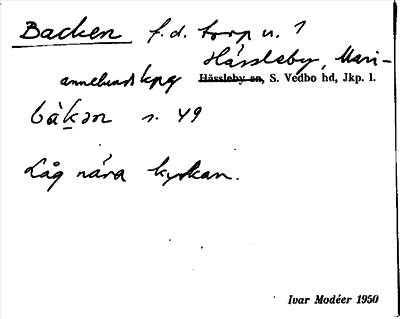 Backen f. d. torp u. 1
Hässleby, Mari-
annelunds kpg Hässleby sn, S. Vedbo hd, Jkp. l.
bàk̲ən s. 49
Låg nära kyrkan.
Ivar Modéer 1950